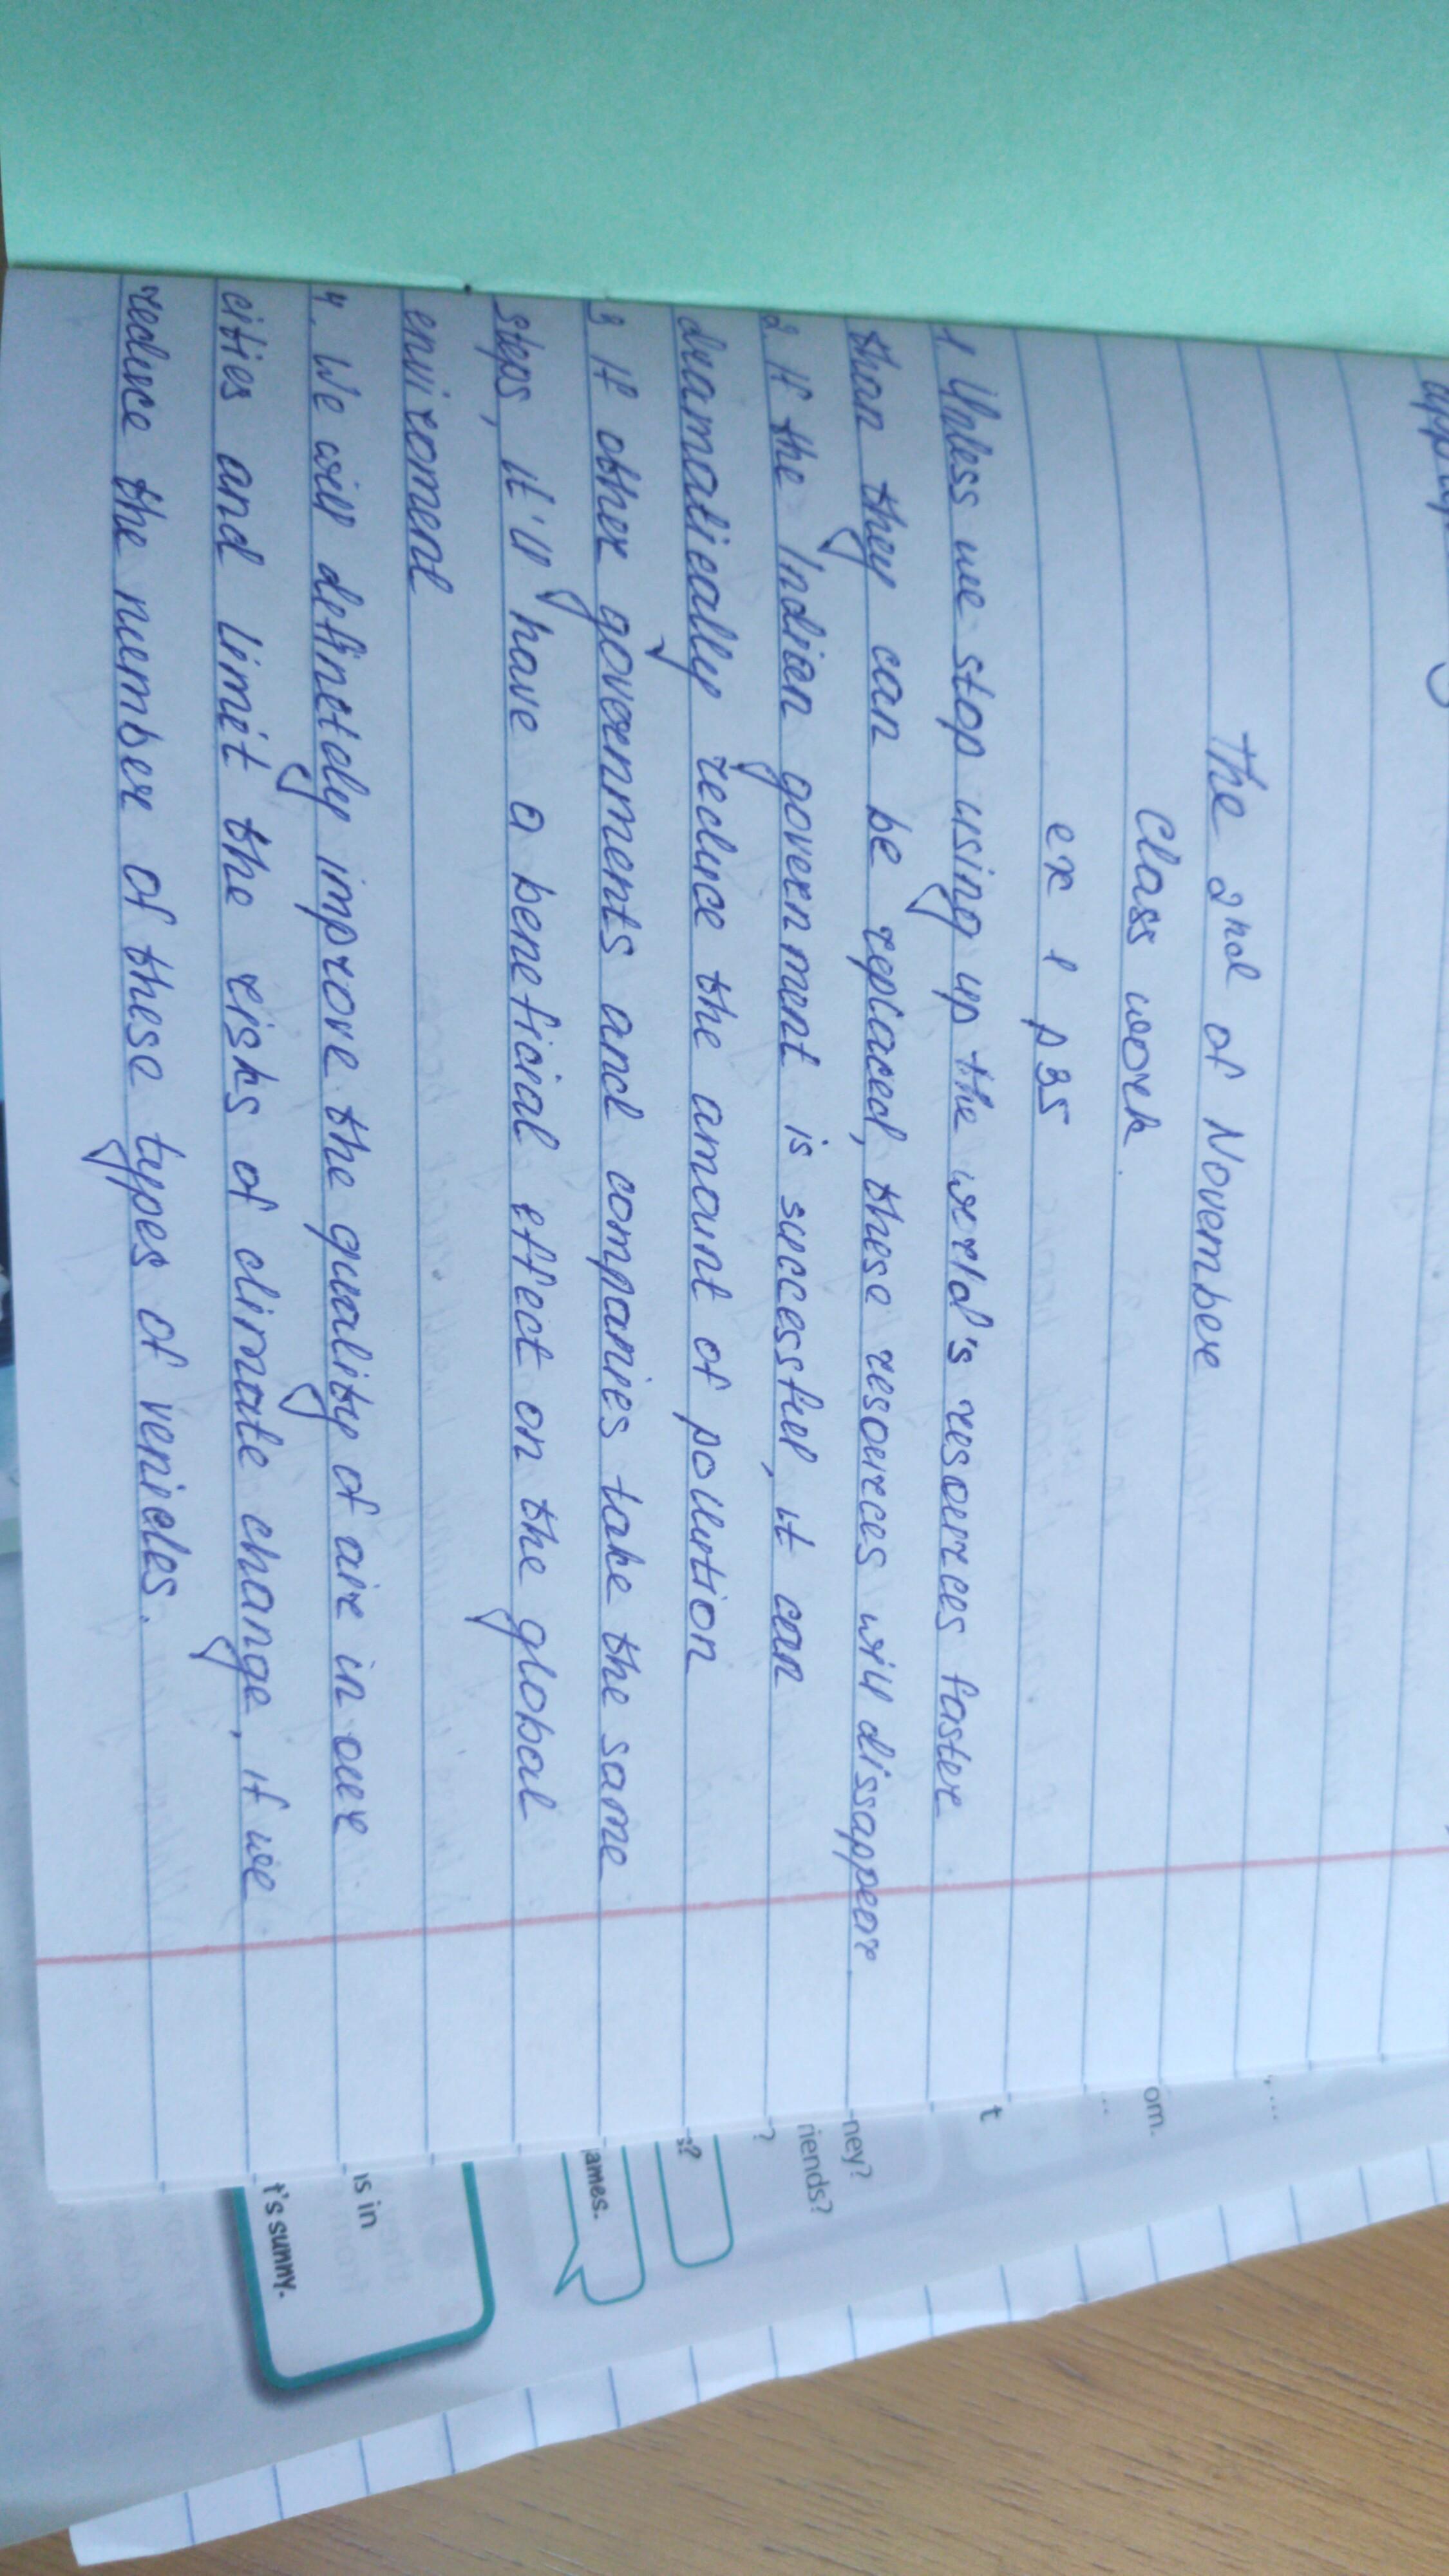 The 2nd of November
Class work.
ex 1 p 35
1 Unless we stop using up the world's resources faster
than they can be replaced, these resources will dissappear.
2. If the Indian government is successful, it can
dramatically reduce the amount of pollution
3 If other governments and companies take the same
steps, it'll have a beneficial effect on the global
enviroment
4. We will definetely improve the quality of air in our
cities and limit the risks of climate change, if we
reduce the number of these types of vehicles.
om.
t
ney?
riends?
?
s?
ames.
is in
t's sunny.